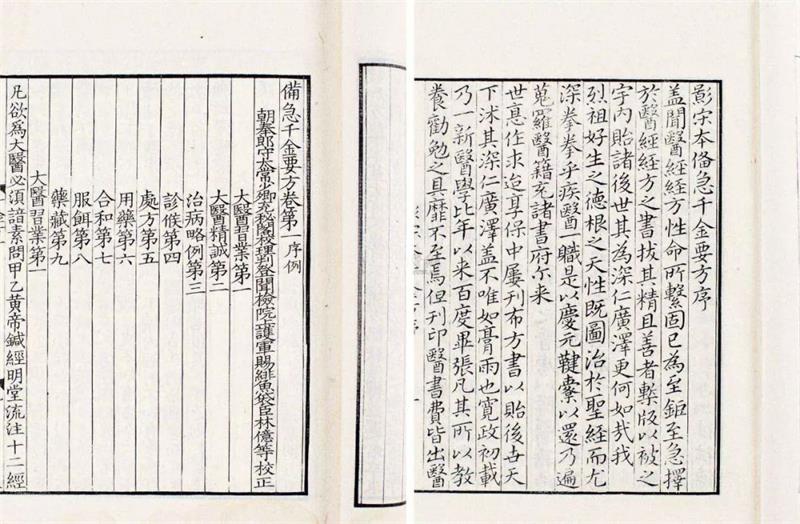 影宋本備急千金要方序
蓋聞醫經經方性命所繫固已為至鉅至急擇
於醫經經方之書拔其精且善者槧版以被之
宇內貽諸後世其為深仁廣澤更何如哉我
烈祖好生之德根之天性既圖治於聖經而尤
深拳拳乎疾醫職是以慶元鞬櫜以還乃遍
蒐羅醫籍充諸書府尔来
世憙任求迨享保中屢刊布方書以貽後世天
下沐其深仁廣澤蓋不唯如膏雨也寬政初載
乃一新醫學比年以來百度畢張凡其所以教
養勸勉之具靡不至焉但刊印醫書費皆出醫
備急千金要方卷第一序例
朝奉郎守太常少卿充秘閣校理判登聞檢院上護軍賜緋魚袋臣林億等校正
大醫習業第一
大醫精誠第二
治病略例第三
診候第四
處方第五
用藥第六
合和第七
服餌第八
藥藏第九
大醫習業第一
凡欲為大醫必須諳素問甲乙黃帝鍼經明堂流注十二經